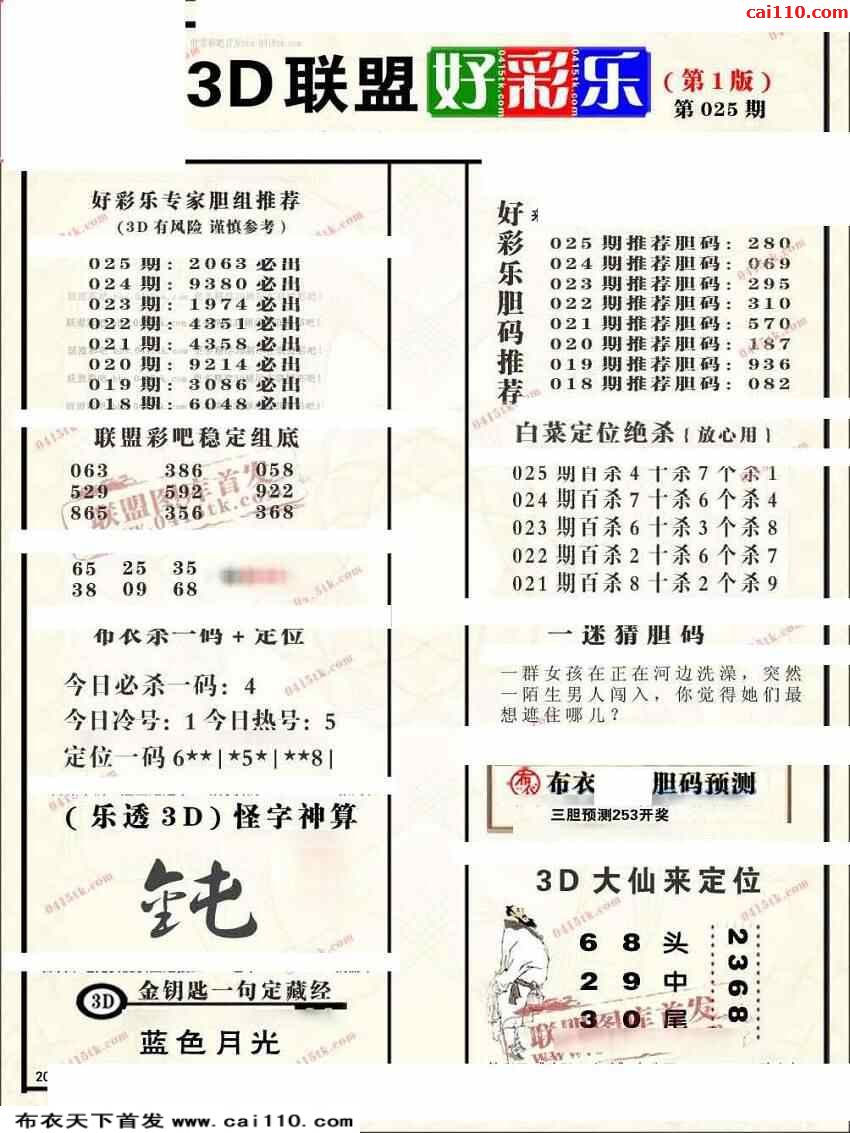 cai110.com
3D联盟好彩乐
(第1版)
第025期
好彩乐专家胆组推荐
(3D有风险 谨慎参考)
025期: 2063必出
024期: 9380必出
023期: 1974必出
022期: 4351必出
021期: 4358必出
020期: 9214必出
019期: 3086必出
018期: 6048必出
联盟彩吧稳定组底
063 386 058
529 592 922
865 356 368
65 25 35
38 09 68
布衣杀一码+定位
今日必杀一码: 4
今日冷号: 1 今日热号: 5
定位一码 6**|*5*|**8|
(乐透3D)怪字神算
鈍
3D 金钥匙一句定藏经
蓝色月光
20
好彩乐胆码推荐
025期推荐胆码: 280
024期推荐胆码: 069
023期推荐胆码: 295
022期推荐胆码: 310
021期推荐胆码: 570
020期推荐胆码: 187
019期推荐胆码: 936
018期推荐胆码: 082
白菜定位绝杀{放心用}
025期百杀4十杀7个杀1
024期百杀7十杀6个杀4
023期百杀6十杀3个杀8
022期百杀2十杀6个杀7
021期百杀8十杀2个杀9
一迷猜胆码
一群女孩在正在河边洗澡，突然
一陌生男人闯入，你觉得她们最
想遮住哪儿？
布衣 胆码预测
三胆预测253开奖
3D大仙来定位
6 8 头
2 9 中
3 0 尾
2368
联盟图库首发
www.0415tk.com
布衣天下首发 www.cai110.com